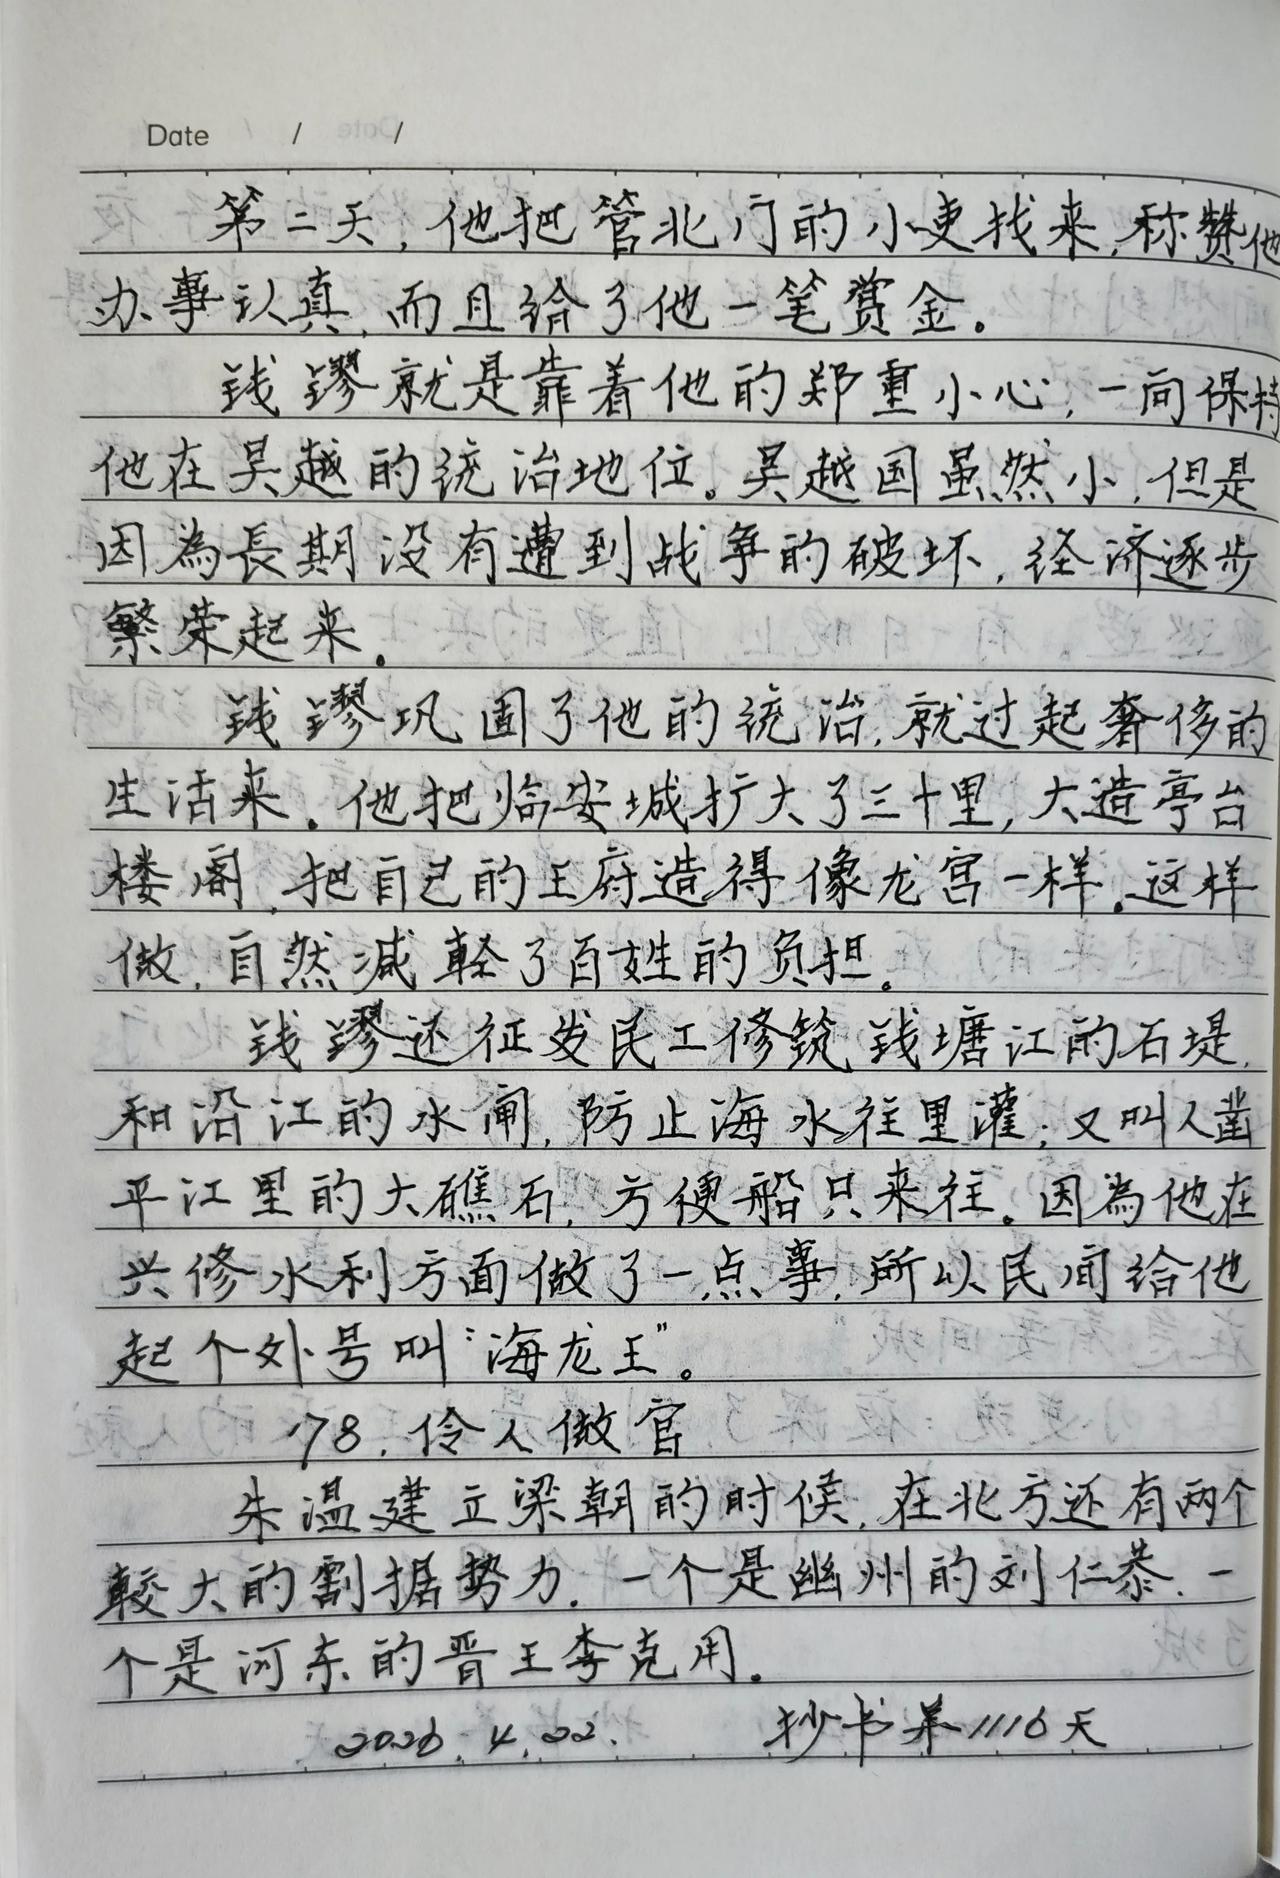 Date / /
第二天,他把管北门的小吏找来,称赞他
办事认真,而且给了他一笔赏金。
钱镠就是靠着他的郑重小心,一向保持
他在吴越的统治地位。吴越国虽然小,但是
因為長期没有遭到战争的破坏,经济逐步
繁荣起来。
钱镠巩固了他的统治,就过起奢侈的
生活来。他把临安城扩大了三十里,大造亭台
楼阁,把自己的王府造得像龙宫一样。这样
做,自然减軽了百姓的负担。
钱镠还征发民工修筑钱塘江的石堤,
和沿江的水闸,防止海水往里灌;又叫人凿
平江里的大礁石,方便船只来往。因為他在
兴修水利方面做了一点事,所以民间给他
起个外号叫“海龙王”。
78.伶人做官
朱温建立梁朝的时候,在北方还有两个
較大的割据势力,一个是幽州的刘仁恭,一
个是河东的晋王李克用。
2026.4.22. 抄书第1116天